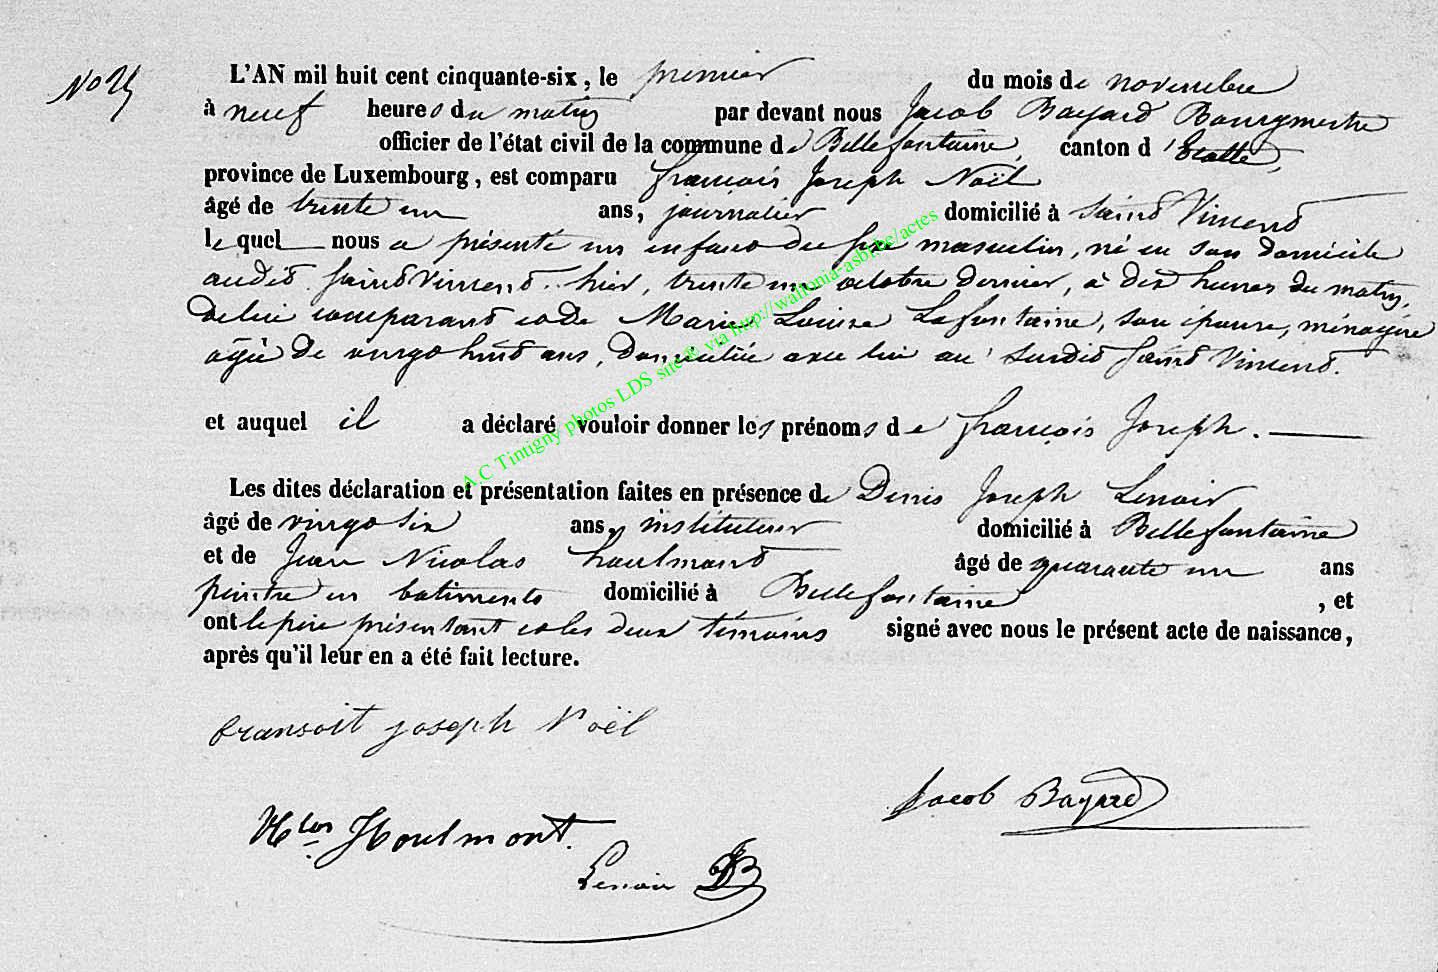 No 25
L'AN mil huit cent cinquante-six, le premier du mois de novembre
à neuf heures du matin par devant nous Jacob Bayard Bourgmestre
officier de l'état civil de la commune de Bellefontaine, canton d'Etalle,
province de Luxembourg, est comparu françois Joseph Noël
âgé de trente un ans, journalier domicilié à Saint Vincent
lequel nous a présenté un enfant du sexe masculin, né en son domicile
audit Saint Vincent hier, trente un octobre dernier, à dix heures du matin,
de lui comparant et de Marie Louise Lafontaine, son épouse, ménagère
agée de vingt huit ans, domiciliée avec lui au surdit Saint Vincent.
et auquel il a déclaré vouloir donner les prénoms de françois Joseph.
Les dites déclaration et présentation faites en présence de Denis Joseph Lenoir
âgé de vingt six ans, instituteur domicilié à Bellefontaine
et de Jean Nicolas houlmont âgé de quarante un ans
peintre en batiments domicilié à Bellefontaine, et
ont le père présentant et les deux témoins signé avec nous le présent acte de naissance,
après qu'il leur en a été fait lecture.
fransoit joseph Noël
Jacob Bayard
Nlas Houlmont.
Lenoir
A.C Tintigny photos LDS site® via http://wallonia-asbl.be/actes